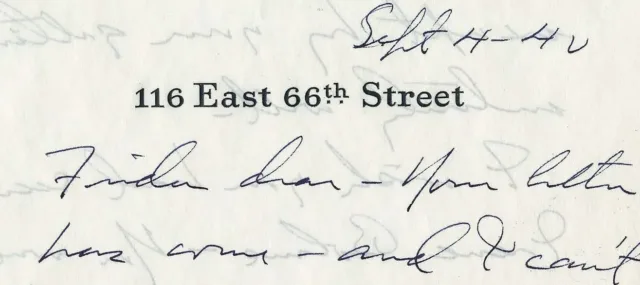 Sept 4-40
116 East 66th Street
dear - Your letter
has come - and I can't